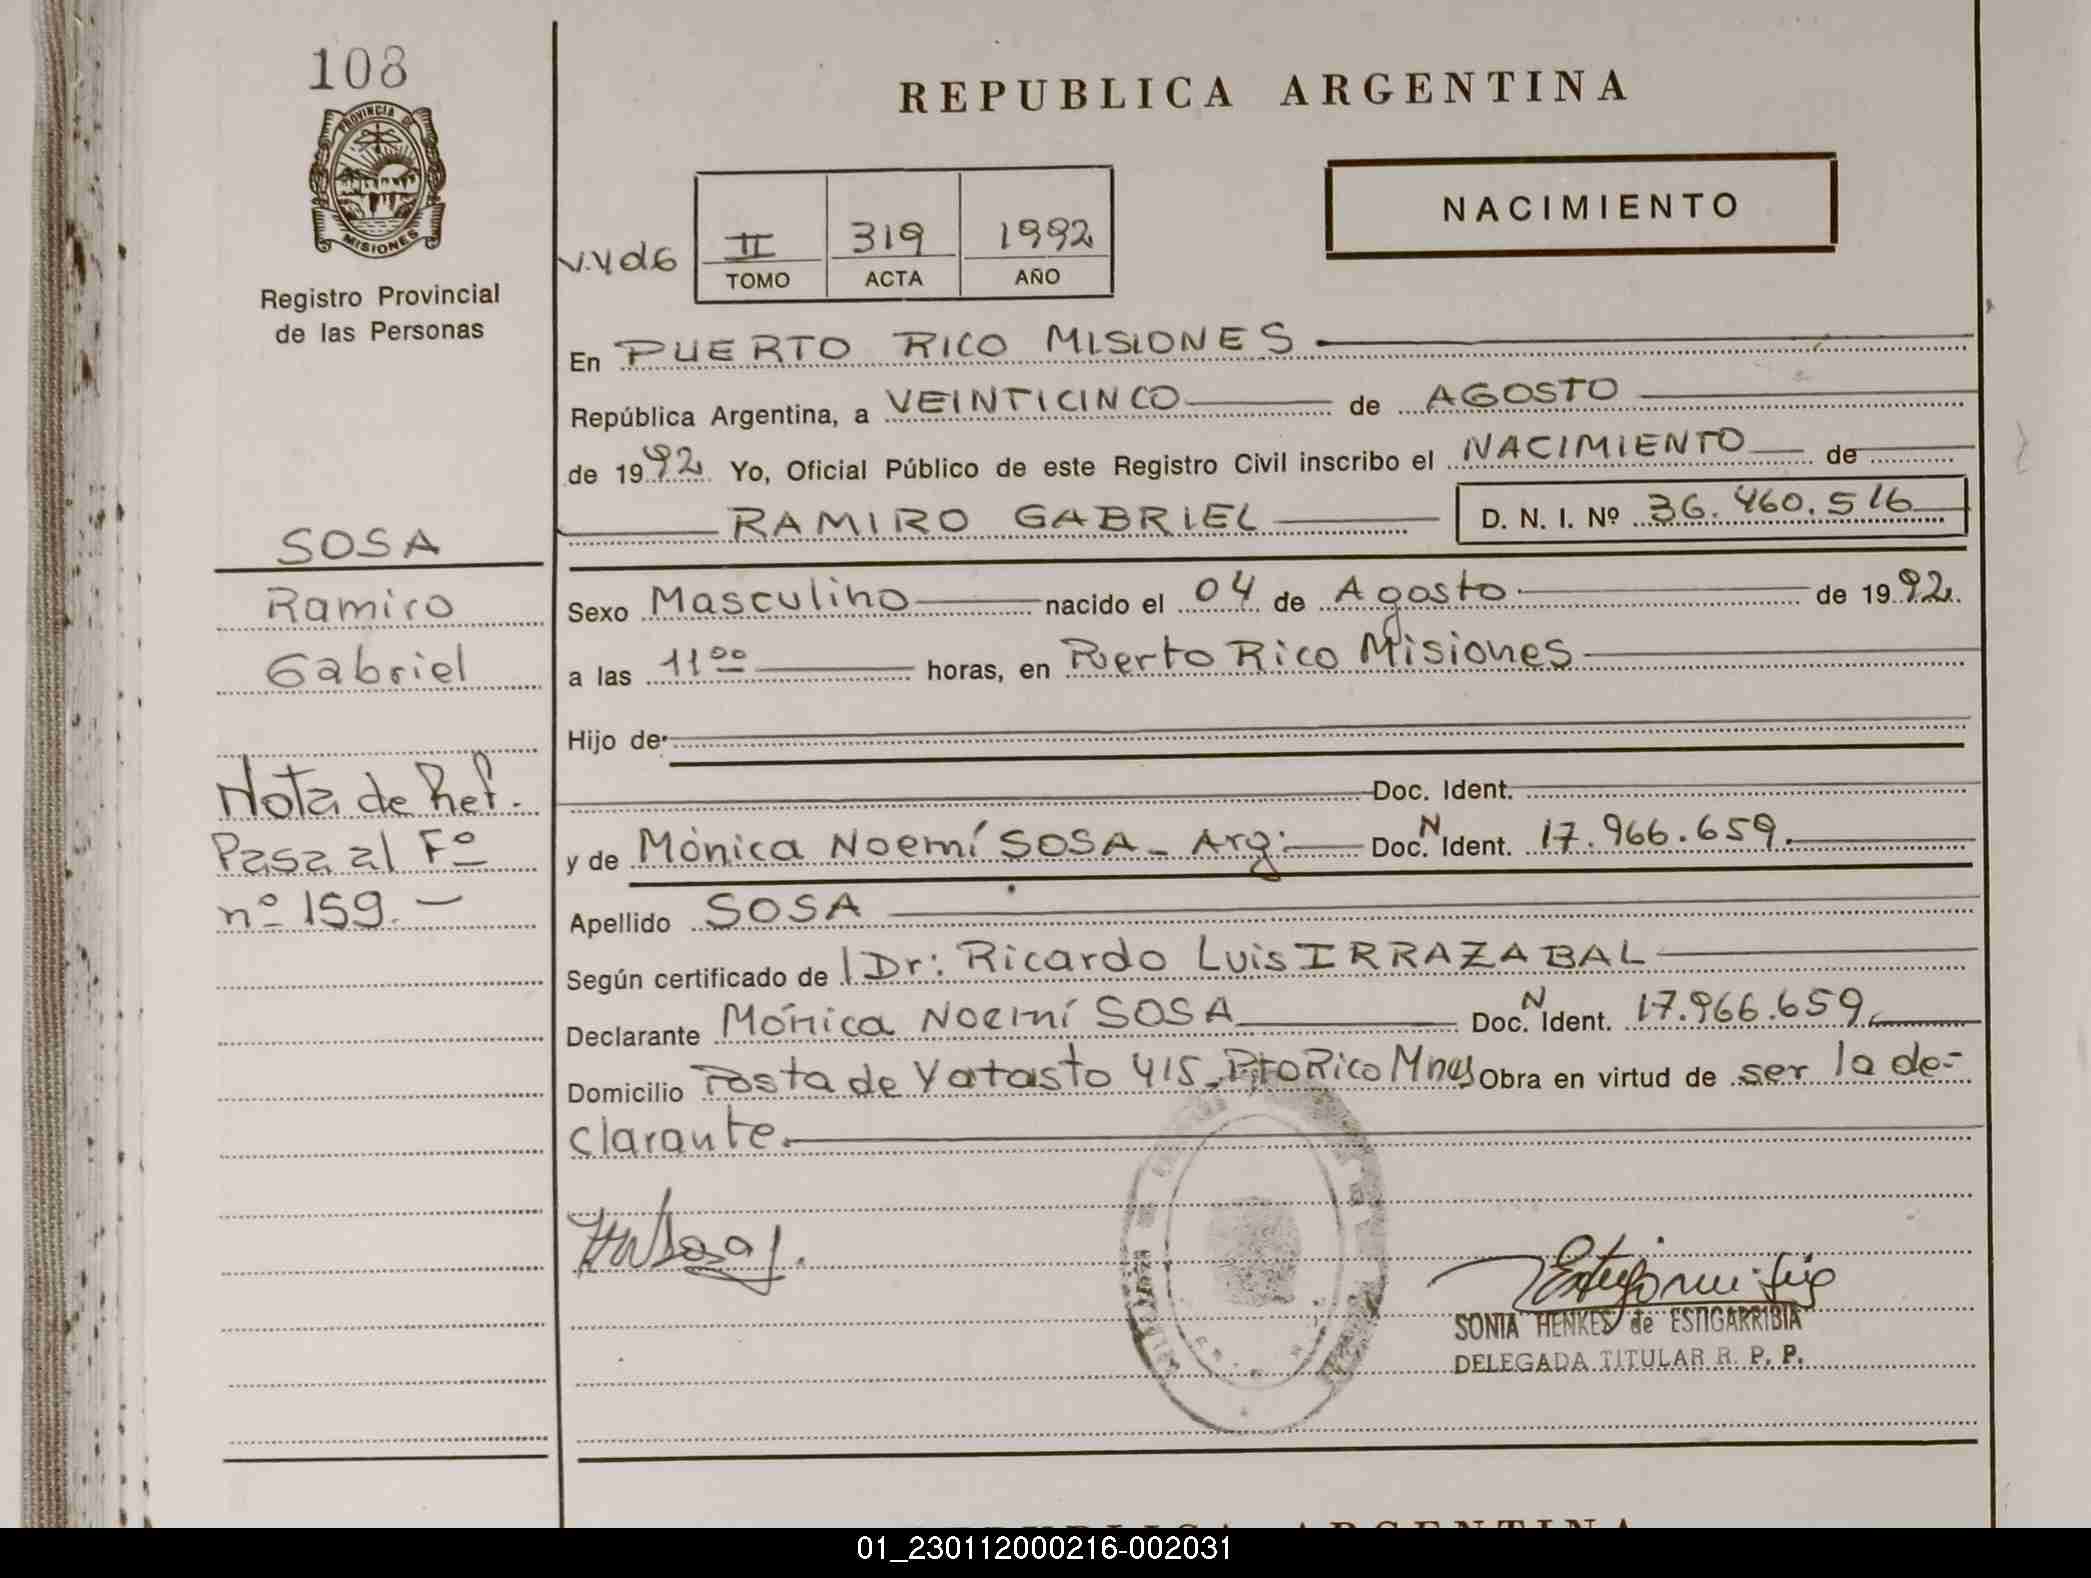 108
PROVINCIA DE
MISIONES
Registro Provincial
de las Personas
REPUBLICA ARGENTINA
NACIMIENTO
II 319 1992
TOMO ACTA AÑO
En PUERTO RICO MISIONES
República Argentina, a VEINTICINCO de AGOSTO
de 1992 Yo, Oficial Público de este Registro Civil inscribo el NACIMIENTO de
RAMIRO GABRIEL D. N. I. Nº 36.460.516
SOSA
Ramiro
Gabriel
Nota de Ref.
Pasa al Fº
nº 159.-
Sexo Masculino nacido el 04 de Agosto de 1992.
a las 11 00 horas, en Puerto Rico Misiones
Hijo de
Doc. Ident.
y de Mónica Noemí SOSA - Arg. Doc. N Ident. 17.966.659.
Apellido SOSA
Según certificado de Dr: Ricardo Luis IRRAZABAL
Declarante Mónica Noemí SOSA Doc. N Ident. 17.966.659.
Domicilio Posta de Yatasto 415. Pto Rico Mnes Obra en virtud de ser la de-
clarante.
SONIA HENKES de ESTIGARRIBIA
DELEGADA TITULAR R. P. P.
REPUBLICA ARGENTINA
01_230112000216-002031